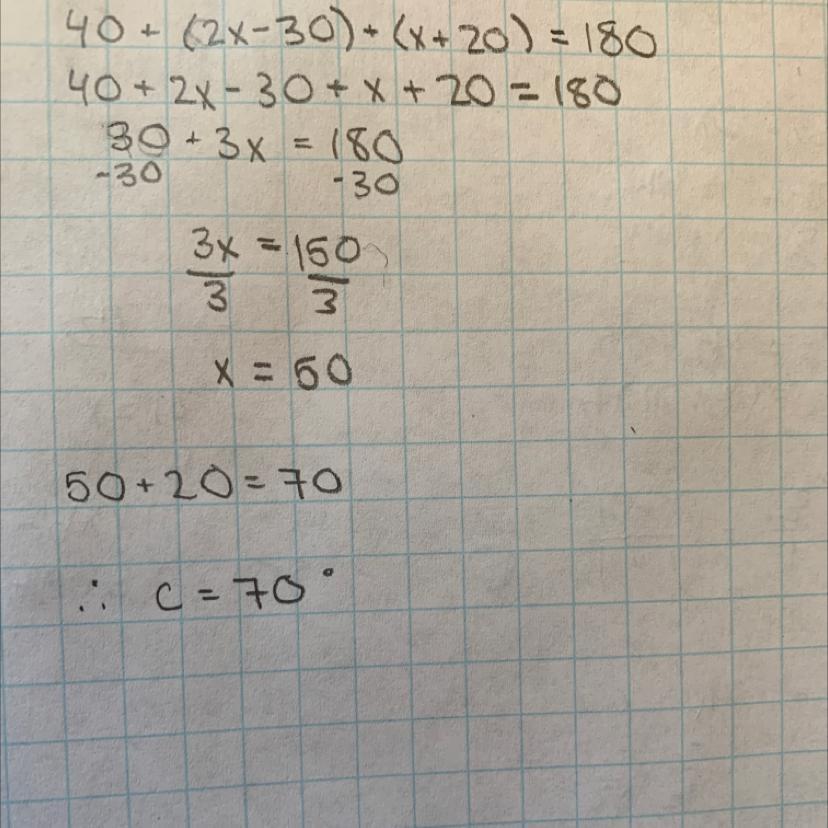 40 + (2x-30) + (x+20) = 180
40 + 2x - 30 + x + 20 = 180
30 + 3x = 180
-30 -30
3x = 150
3 3
x = 50
50 + 20 = 70
∴ c = 70°